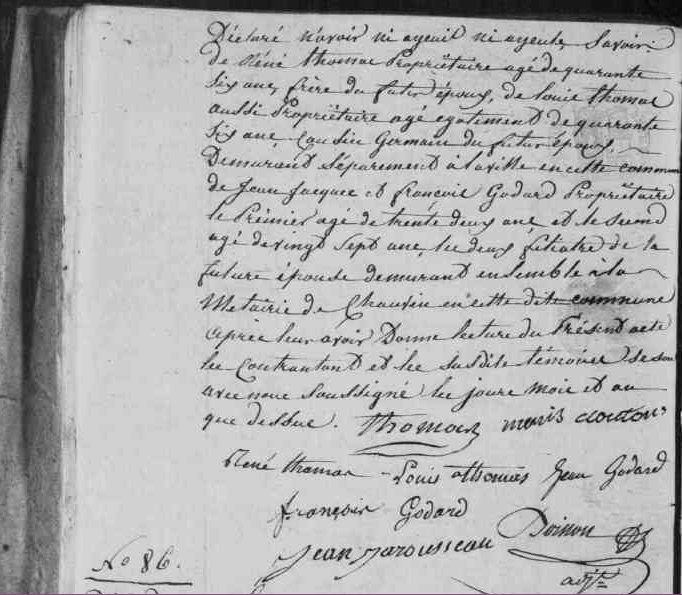 Déclaré n'avoir ni ayeuil ni ayeule, Savoir:
de Réné Thomas Propriétaire agé de quarante
Six ans, frère du futur époux, de Louis Thomas
aussi Propriétaire agé égalément de quarante
Six ans, Cousin Germain du futur époux,
Demurant Séparément à la ville en cette commune
de Jean Jacques et françois Godard Propriétaire
le Prémier agé de trente deux ans et le Second
agé de vingt Sept ans, les deux de la
future épouse demurant ensemble à la
Métairie de Chauvin en cette dite commune
après leur avoir Donné lecture du Présent acte
les Contractant et les Susdits témoins Se son
avec nous Soussigné les jours mois et an
que dessus. Thomas marie
Réné thomas Louis thomas Jean Godard
françois Godard
Jean Jarousseau Doinon
adjt
No 86.